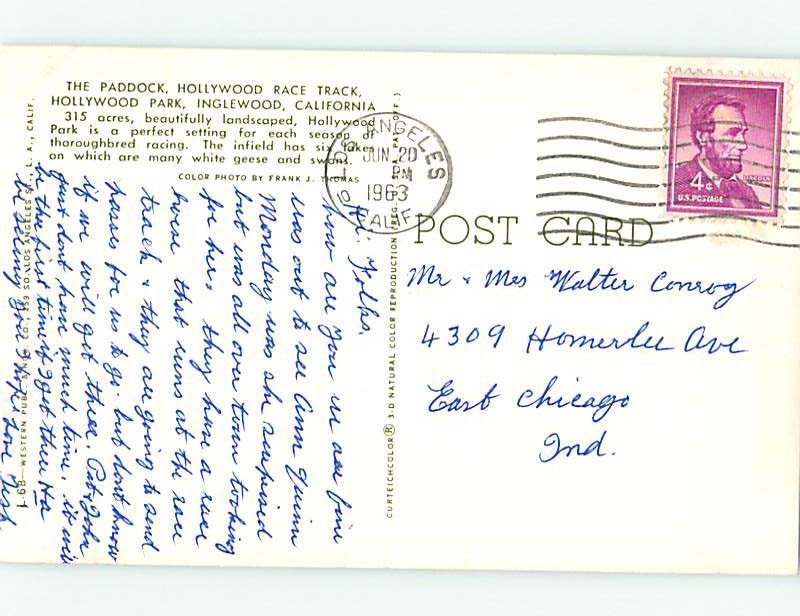 THE PADDOCK, HOLLYWOOD RACE TRACK,
HOLLYWOOD PARK, INGLEWOOD, CALIFORNIA
315 acres, beautifully landscaped, Hollywood
Park is a perfect setting for each season of
thoroughbred racing. The infield has six lakes
on which are many white geese and swans.
COLOR PHOTO BY FRANK J. THOMAS
LOS ANGELES
CALIF.
JUN 20
PM
1963
LINCOLN
4¢
U.S. POSTAGE
POST CARD
Mr & Mrs Walter Conroy
4309 Homerlee Ave
East Chicago
Ind.
Hi Folks,
how are you we are fine
was out to see Ann Quinn
Monday was she surprised
but was all over town looking
for her, they have a race
horse that runs at the race
track & they are going to send
passes for us to go. but dont know
if we will get there. Pat & John
just dont have much time, it will
be the first time if I get there Ha
you Love
L-68—WESTERN PUB. & NOV. CO., 259 SO. LOS ANGELES ST., L. A., CALIF.
CURTEICHCOLOR® 3-D NATURAL COLOR REPRODUCTION (REG. U.S. PAT. OFF.)